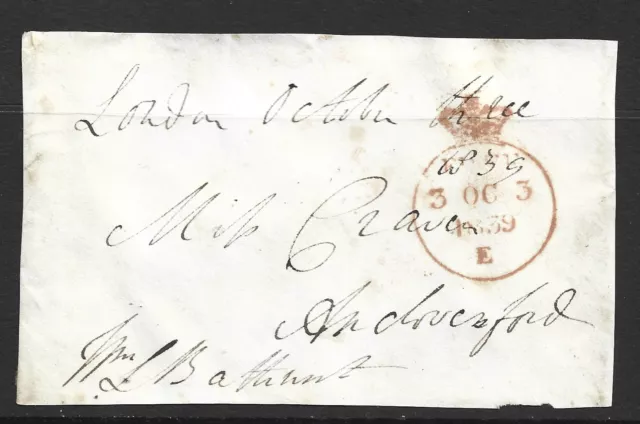 London October three
1839
FREE
3 OC 3
1839
E
Miss Craven
Andoversford
Wm L Bathurst